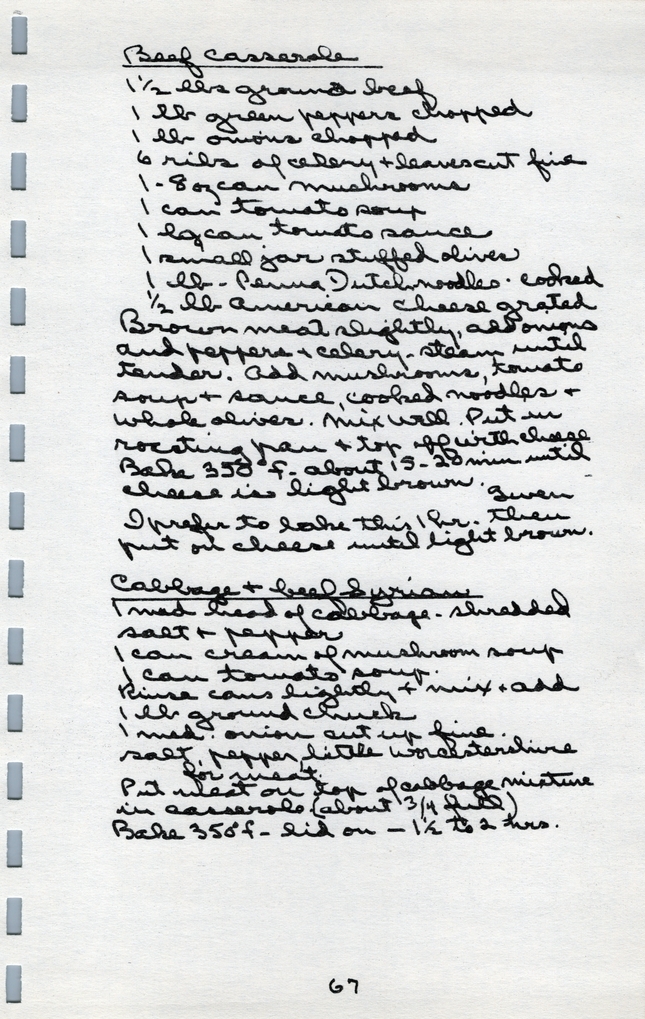 Beef Casserole
1 1/2 lbs ground beef
1 lb green peppers chopped
1 lb onions chopped
6 ribs of celery + leaves cut fine
1 - 8 oz can mushrooms
1 can tomato soup
1 lg can tomato sauce
1 small jar stuffed olives
1 lb - Penna Dutch noodles - cooked
1/2 lb American cheese grated
Brown meat slightly, add onions
and peppers + celery - steam until
tender. Add mushrooms, tomato
soup + sauce, cooked noodles +
whole olives. Mix well. Put in
roasting pan + top off with cheese
Bake 350°f - about 15-20 min until
cheese is light brown.
I prefer to bake this 1 hr. then
put on cheese until light brown.
Cabbage + beef Syrian
1 med head of cabbage - shredded
salt + pepper
1 can cream of mushroom soup
1 can tomato soup.
Rinse cans lightly + mix + add
1 lb ground chuck
1 med. onion cut up fine.
salt, pepper, little worcestershire
for meat.
Put meat on top of cabbage mixture
in casserole (about 3/4 full)
Bake 350°f - lid on - 1 1/2 to 2 hrs.
67